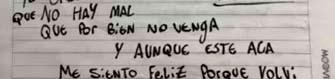 QUE NO HAY MAL
QUE POR BIEN NO VENGA
Y AUNQUE ESTE ACA
ME SIENTO FELIZ PORQUE VOLVI